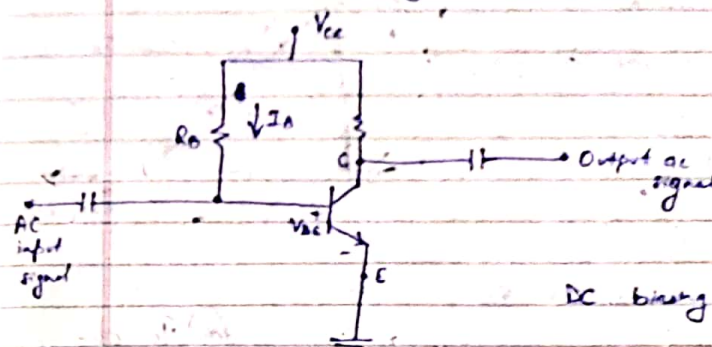 Vcc
IB
RB
C
Output ac
signal
AC
input
signal
VBE
+
-
E
DC biasing